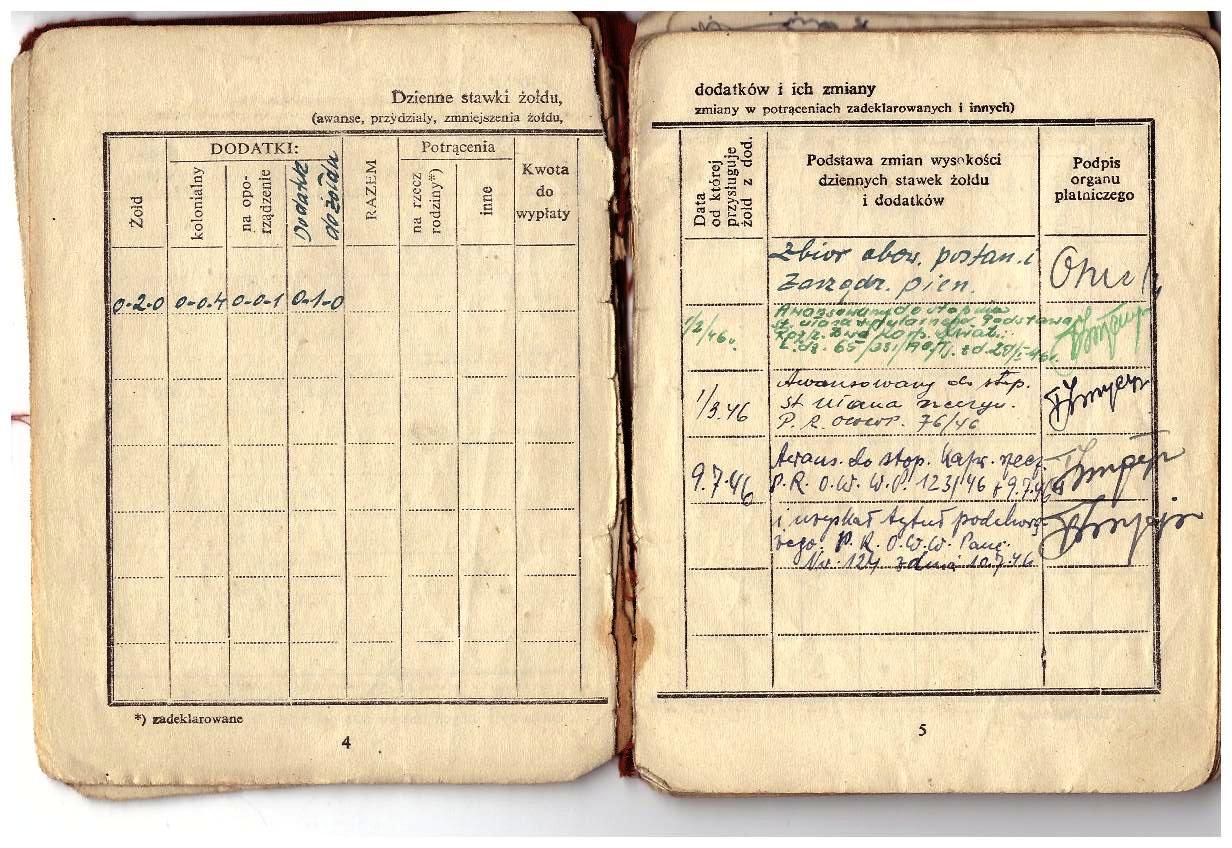 Dzienne stawki żołdu,
(awanse, przydziały, zmniejszenia żołdu,
Żołd
DODATKI:
kolonialny
na opo-
rządzenie
Dodatek
do żołdu
RAZEM
Potrącenia
na rzecz
rodziny*)
inne
Kwota
do
wypłaty
0-2-0 0-0-4 0-0-1 0-1-0
*) zadeklarowane
4
dodatków i ich zmiany
zmiany w potrąceniach zadeklarowanych i innych)
Data
od której
przysługuje
żołd z dod.
Podstawa zmian wysokości
dziennych stawek żołdu
i dodatków
Podpis
organu
płatniczego
Zbiór obow. postan. i
Zarządz. pien.
1/2/46 r.
Awansowany do stopnia
st. ułana tytularnego. Podstawa
L.dz. 65
1/3.46
Awansowany do stop.
st. ułana rzeczyw.
P. R. 76/46
9.7.46
Awans. do stop. kapr. rzecz.
P. R. O. W. W. P. 123/46 z 9.7.46
i uzyskał tytuł podchorą-
żego. P. R. O. W. W. Panc.
Nr. 124 z dnia 10.7.46
5